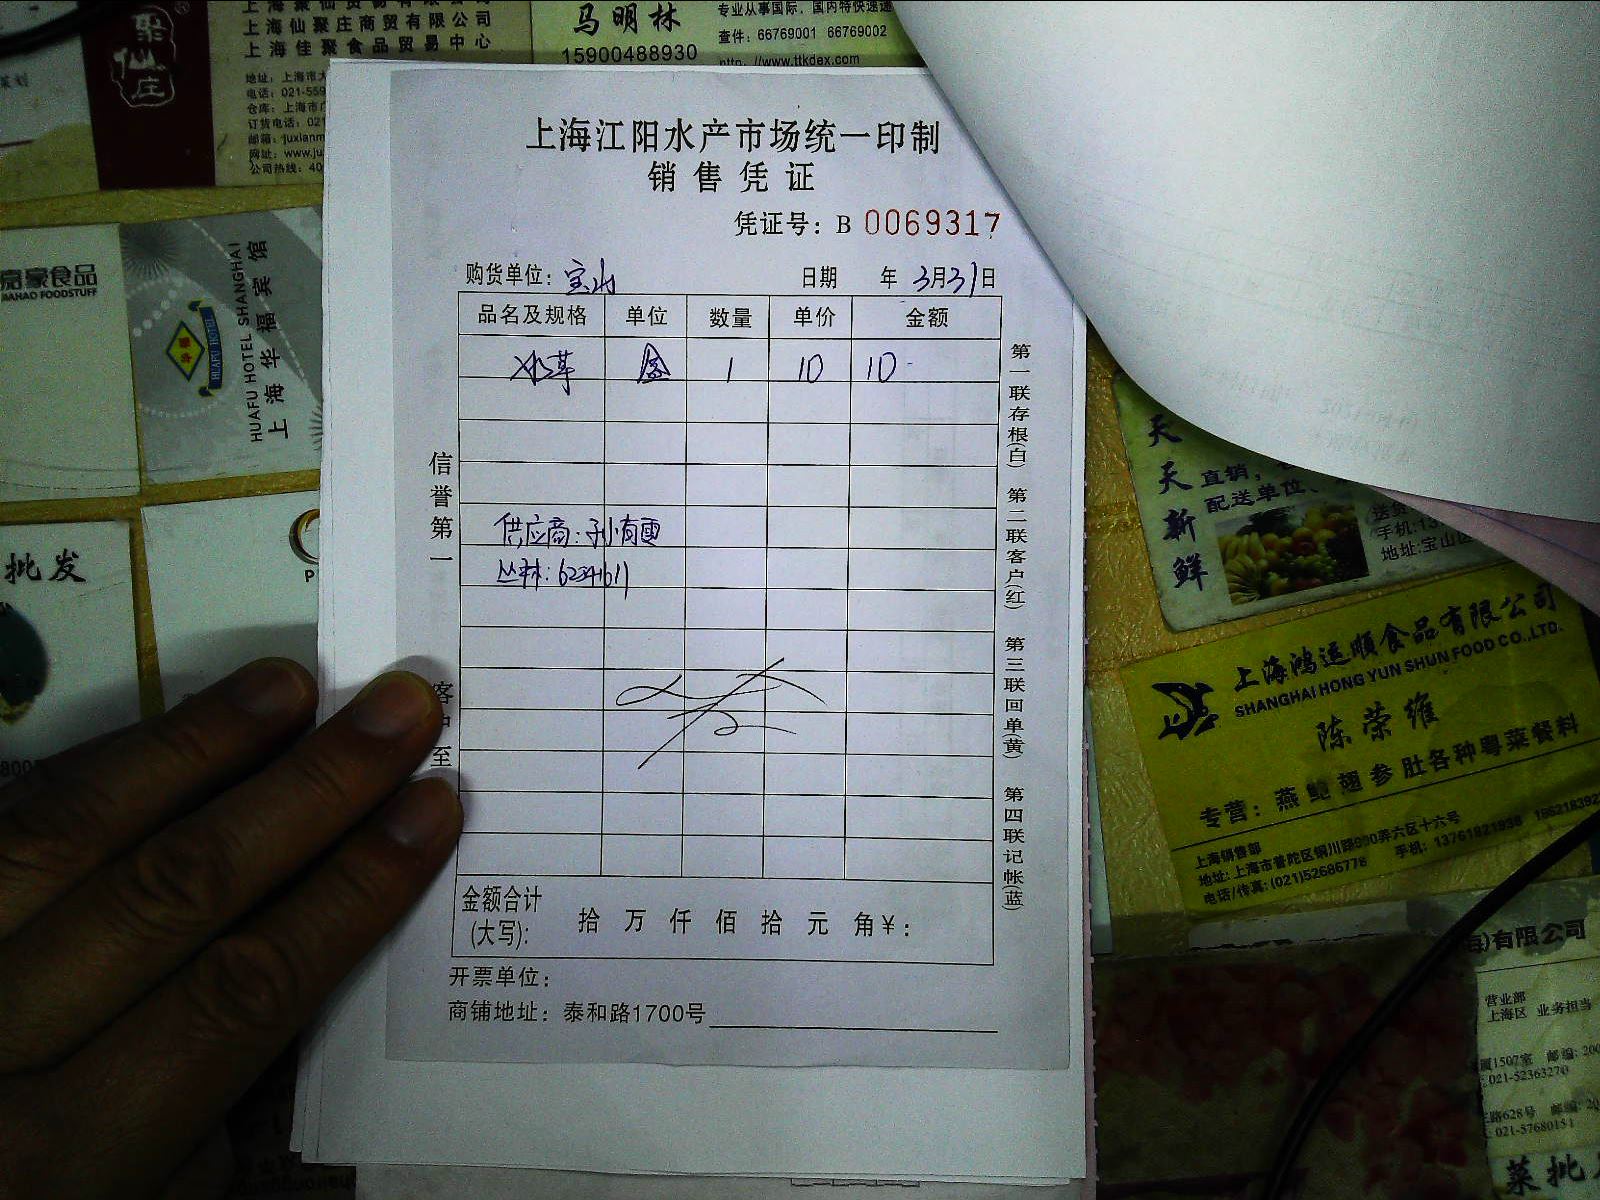 上海仙聚庄商贸有限公司
上海佳聚食品贸易中心
聚仙庄
马明林
15900488930
专业从事国际、国内特快速递
查件: 66769001 66769002
http://www.ttkdex.com
嘉豪食品
JIAHAO FOODSTUFF
HUAFU HOTEL SHANGHAI
上海华福宾馆
HUAFU HOTEL
批发
上海江阳水产市场统一印制
销售凭证
凭证号: B 0069317
购货单位: 宝山 日期 年 3月31日
品名及规格 单位 数量 单价 金额
盒 1 10 10
供应商:孙有雷
丛林:62341611
金额合计
(大写): 拾 万 仟 佰 拾 元 角 ¥:
开票单位:
商铺地址: 泰和路1700号
信誉第一
客户至
第一联存根(白) 第二联客户(红) 第三联回单(黄) 第四联记帐(蓝)
天天新鲜
直销,
配送单位、
手机:13
地址:宝山区
上海鸿运顺食品有限公司
SHANGHAI HONG YUN SHUN FOOD CO.,LTD.
陈荣维
专营: 燕 鲍 翅 参 肚各种粤菜餐料
上海销售部
地址: 上海市普陀区铜川路990弄六区十六号
电话/传真: (021)52686778 手机: 13761821938
有限公司
营业部
上海区 业务担当
1507室 邮编: 200
021-52363270
路628号 邮编: 20
021-57680151
菜批